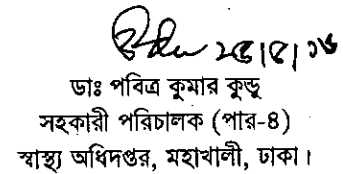 ২৫।৫।১৬
ডাঃ পবিত্র কুমার কুন্ডু
সহকারী পরিচালক (পার-৪)
স্বাস্থ্য অধিদপ্তর, মহাখালী, ঢাকা।